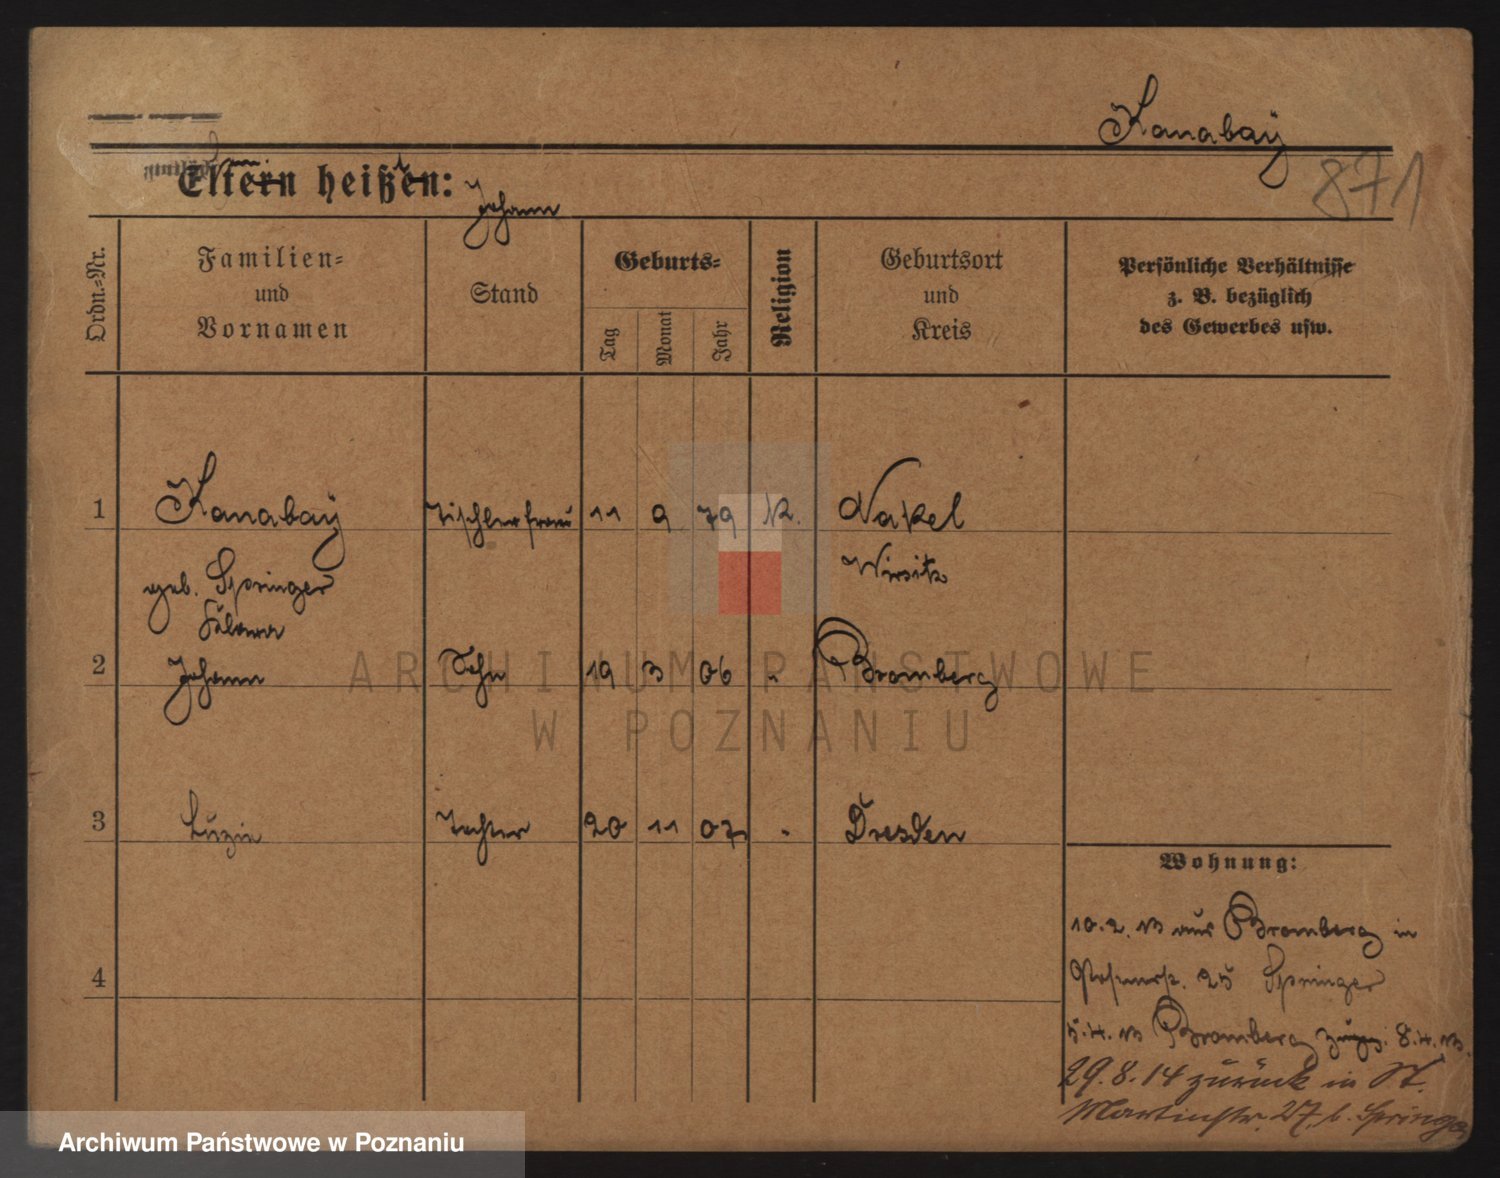 Kanabaÿ
871
Eltern heißen:
Johann
Ordn.-Nr.
Familien-
und
Vornamen
Stand
Geburts-
Tag
Monat
Jahr
Religion
Geburtsort
und
Kreis
Persönliche Verhältnisse
z. B. bezüglich
des Gewerbes usw.
1 Kanabaÿ Tischlerfrau 11 9 79 K. Nakel
geb. Springer Wirsitz
2 Johann Sohn 19 3 06 " Bromberg
3 Luzie Tochter 20 11 07 " Dresden
Wohnung:
10.2.13 aus Bromberg in
25 Springer
4
5.4.13 Bromberg 8.4.13.
29.8.14 zurück in St.
Martinstr. 27, b. Springer
ARCHIWUM PAŃSTWOWE
W POZNANIU
Archiwum Państwowe w Poznaniu